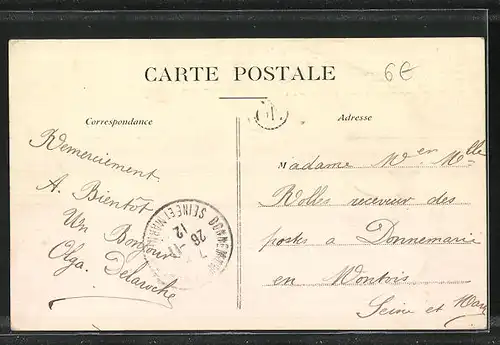 6€
CARTE POSTALE
Correspondance
Adresse
Remerciement
A. Bientôt
Un Bonjour
Olga. Delaroche
SEINE ET MARNE
26
12
Madame Vve et Mlle
Rolles receveur des
postes a Donnemarie
en Montois
Seine et Marne